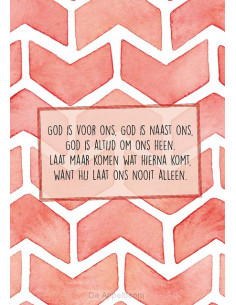 GOD IS VOOR ONS, GOD IS NAAST ONS,
GOD IS ALTIJD OM ONS HEEN.
LAAT MAAR KOMEN WAT HIERNA KOMT,
WANT HIJ LAAT ONS NOOIT ALLEEN.